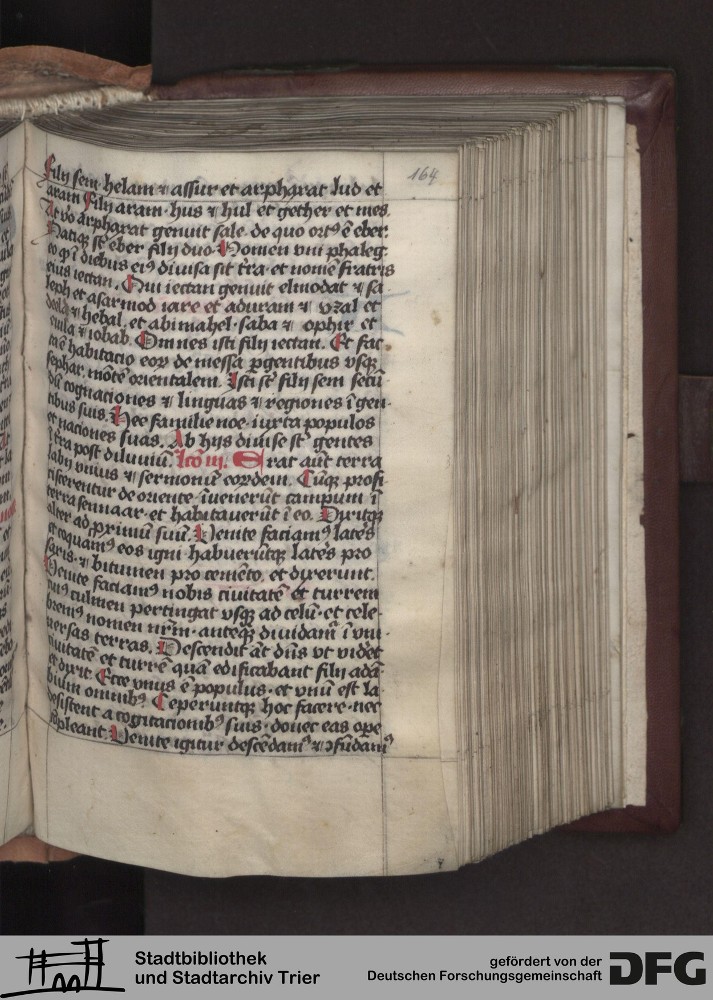 164
Filij sem. helam ⁊ assur et arpharat lud et
aram Filij aram. hus ⁊ hul et gether et mes.
At vo arpharat genuit sale. de quo ortꝰ ē eber.
Natiqꝫ st eber filij duo. Nomen vni phaleg.
eo ꝙ ī diebus eiꝰ diuisa sit tra. et nomē fratris
eius iectan. Qui iectan genuit elmodat ⁊ sa
leph et asarmod iare et aduram ⁊ vzal et
decla ⁊ hebal. et abimahel. saba ⁊ ophir et
euila ⁊ iobab. Omnes isti filij iectan. Et fac
ta ē habitacio eoꝝ de messa ꝑgentibus vsqꝫ
sephar. mōtē orientalem. Isti st filij sem secū
dū cognaciones ⁊ linguas ⁊ regiones ī gen
tibus suis. Hee familie noe. iuxta populos
et naciones suas. Ab hijs diuise st gentes
ī tra post diluuiū. lcō iii. Erat aūt terra
labij vnius ⁊ sermonū eordem. Cūqꝫ profi
ciscerentur de oriente. īuenerūt campum ī
terra sennaar. et habitauerūt ī eo. Dixitqꝫ
alter ad proximū suū. Venite faciamꝰ lateˢ
et coquamꝰ eos igni habuerūtqꝫ lateˢ pro
saxis. ⁊ bitumen pro cemēto. et dixerunt.
Venite faciamꝰ nobis ciuitatē et turrem
cuiꝰ culmen pertingat vsqꝫ ad celū. et cele
bremꝰ nomen nrm. anteqꝫ diuidam̄ ī vni
uersas terras. Descendit āt dns vt videret
ciuitatē et turrē quā edificabant filij adā.
et dixit. Ecce vnus ē populus. et vnū est la
bium omnibꝰ Ceperuntqꝫ hoc facere. nec
desistent a cogitacionibꝰ suis. donec eas oꝑe
cōpleant. Venite igitur descēdamꝰ ⁊ ꝯfūdamꝰ
Stadtbibliothek
und Stadtarchiv Trier
gefördert von der
Deutschen Forschungsgemeinschaft
DFG